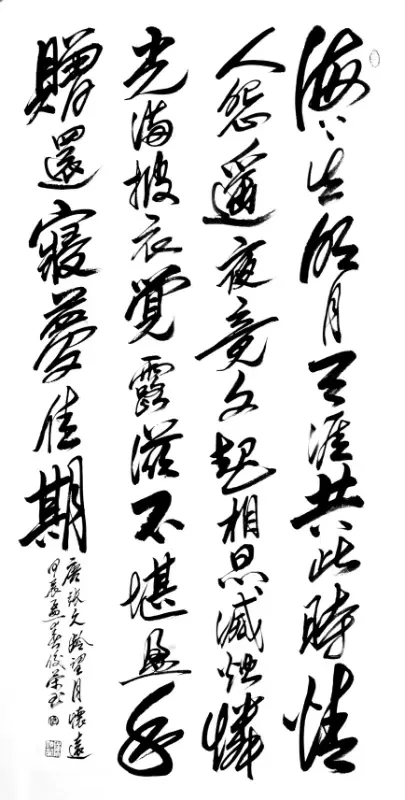 海上生明月天涯共此時情
人怨遙夜竟夕起相思滅燭憐
光滿披衣覺露滋不堪盈手
贈還寢夢佳期
唐張九齡望月懷遠
甲辰孟春俊榮書